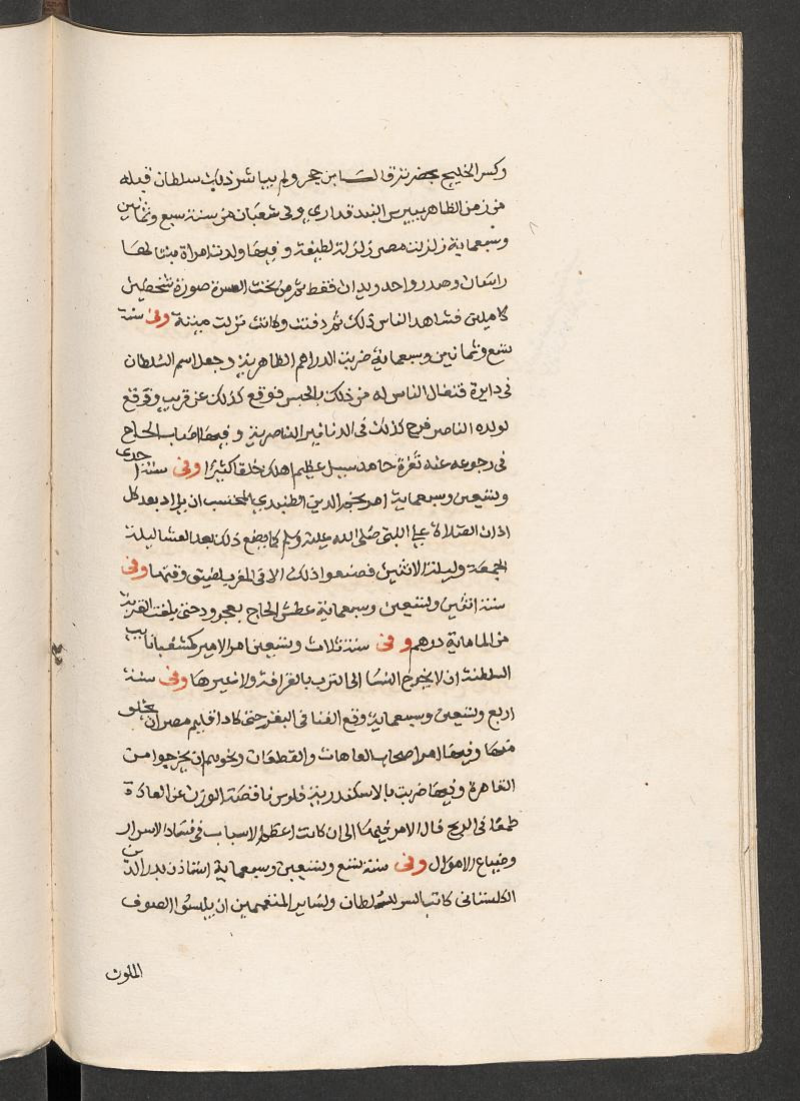 وكسر الخليج بحضرته قال ابن حجر ولم يباشر ذلك سلطان قبله
من زمن الظاهر بيبرس البندقداري وفي شعبان من سنة سبع وثمانين
وسبعماية زلزلت مصر زلزلة لطيفة وفيها ولدت امراة بنتا لها
راسان وصدر واحد ويدان فقط ثم من تحت السرة صورة شخصين
كاملين فشاهد الناس ذلك ثم دفنت وكانت نزلت ميتة وفي سنة
تسع وثمانين وسبعماية ضربت الدراهم الظاهرية وجعل اسم السلطان
في دايرة فتفال الناس له من ذلك بالحبس فوقع كذلك عن قريب ووقع
لولده الناصر فرج كذلك في الدنانير الناصرية وفيها اصاب الحاج
في رجوعه عند ثغرة حامد سيل عظيم اهلك خلقا كثيرا وفي سنة احدى
وتسعين وسبعماية امر نجم الدين الطنبدي المحتسب ان يزاد بعد كل
اذان الصلاة على النبي صلى الله عليه وسلم كما يصنع ذلك بعد العشا ليلة
الجمعة وليلة الاثنين فصنعوا ذلك الا في المغرب لضيق وقتها وفي
سنة اثنين وتسعين وسبعماية عطش الحاج بعجرود حتى بلغت القربة
من الما ماية درهم وفي سنة ثلاث وتسعين امر الامير كمشبغا نايب
السلطنة ان لا يخرج النسا الى الترب بالقرافة ولا غيرها وفي سنة
اربع وتسعين وسبعماية وقع الفنا في البقر حتى كاد اقليم مصر ان يخلو
منها وفيها امر اصحاب العاهات والقطعات ونحوهم ان يخرجوا من
القاهرة وفيها ضربت بالاسكندرية فلوس ناقصة الوزن عن العادة
طمعا في الربح فال الامر فيها الى ان كانت اعظم الاسباب في فساد الاسرار
وضياع الاموال وفي سنة تسع وتسعين وسبعماية استاذن بدر الدين
الكلستاني كاتب السر للسلطان ولساير المتعممين ان يلبسوا الصوف
الملون